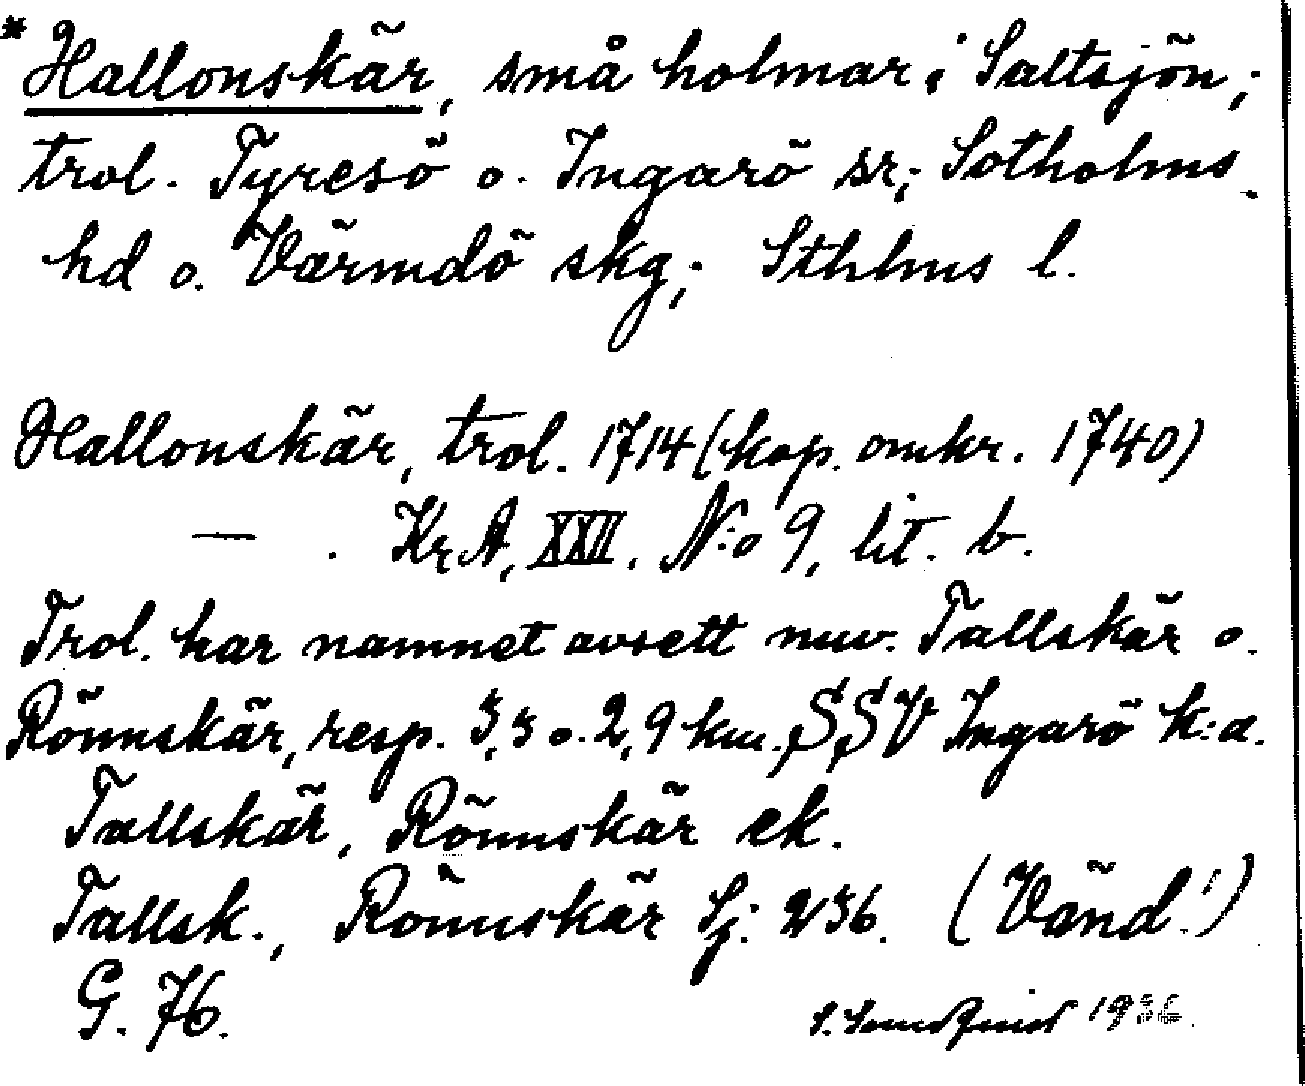 * Hallonskär, små holmar i Saltsjön;
trol. Tyresö o. Ingarö sr; Sotholms
hd o. Värmdö skg; Sthlms l.
Hallonskär, trol. 1714 (kop. omkr. 1740)
— . KrA, XXII. N:o 9, lit. b.
Trol. har namnet avsett nuv. Tallskär o.
Rönnskär, resp. 3,3 o. 2,9 km. SSV Ingarö k:a.
Tallskär, Rönnskär ek.
Tallsk., Rönnskär Sj: 236. (Vänd!)
G. 76.
1936